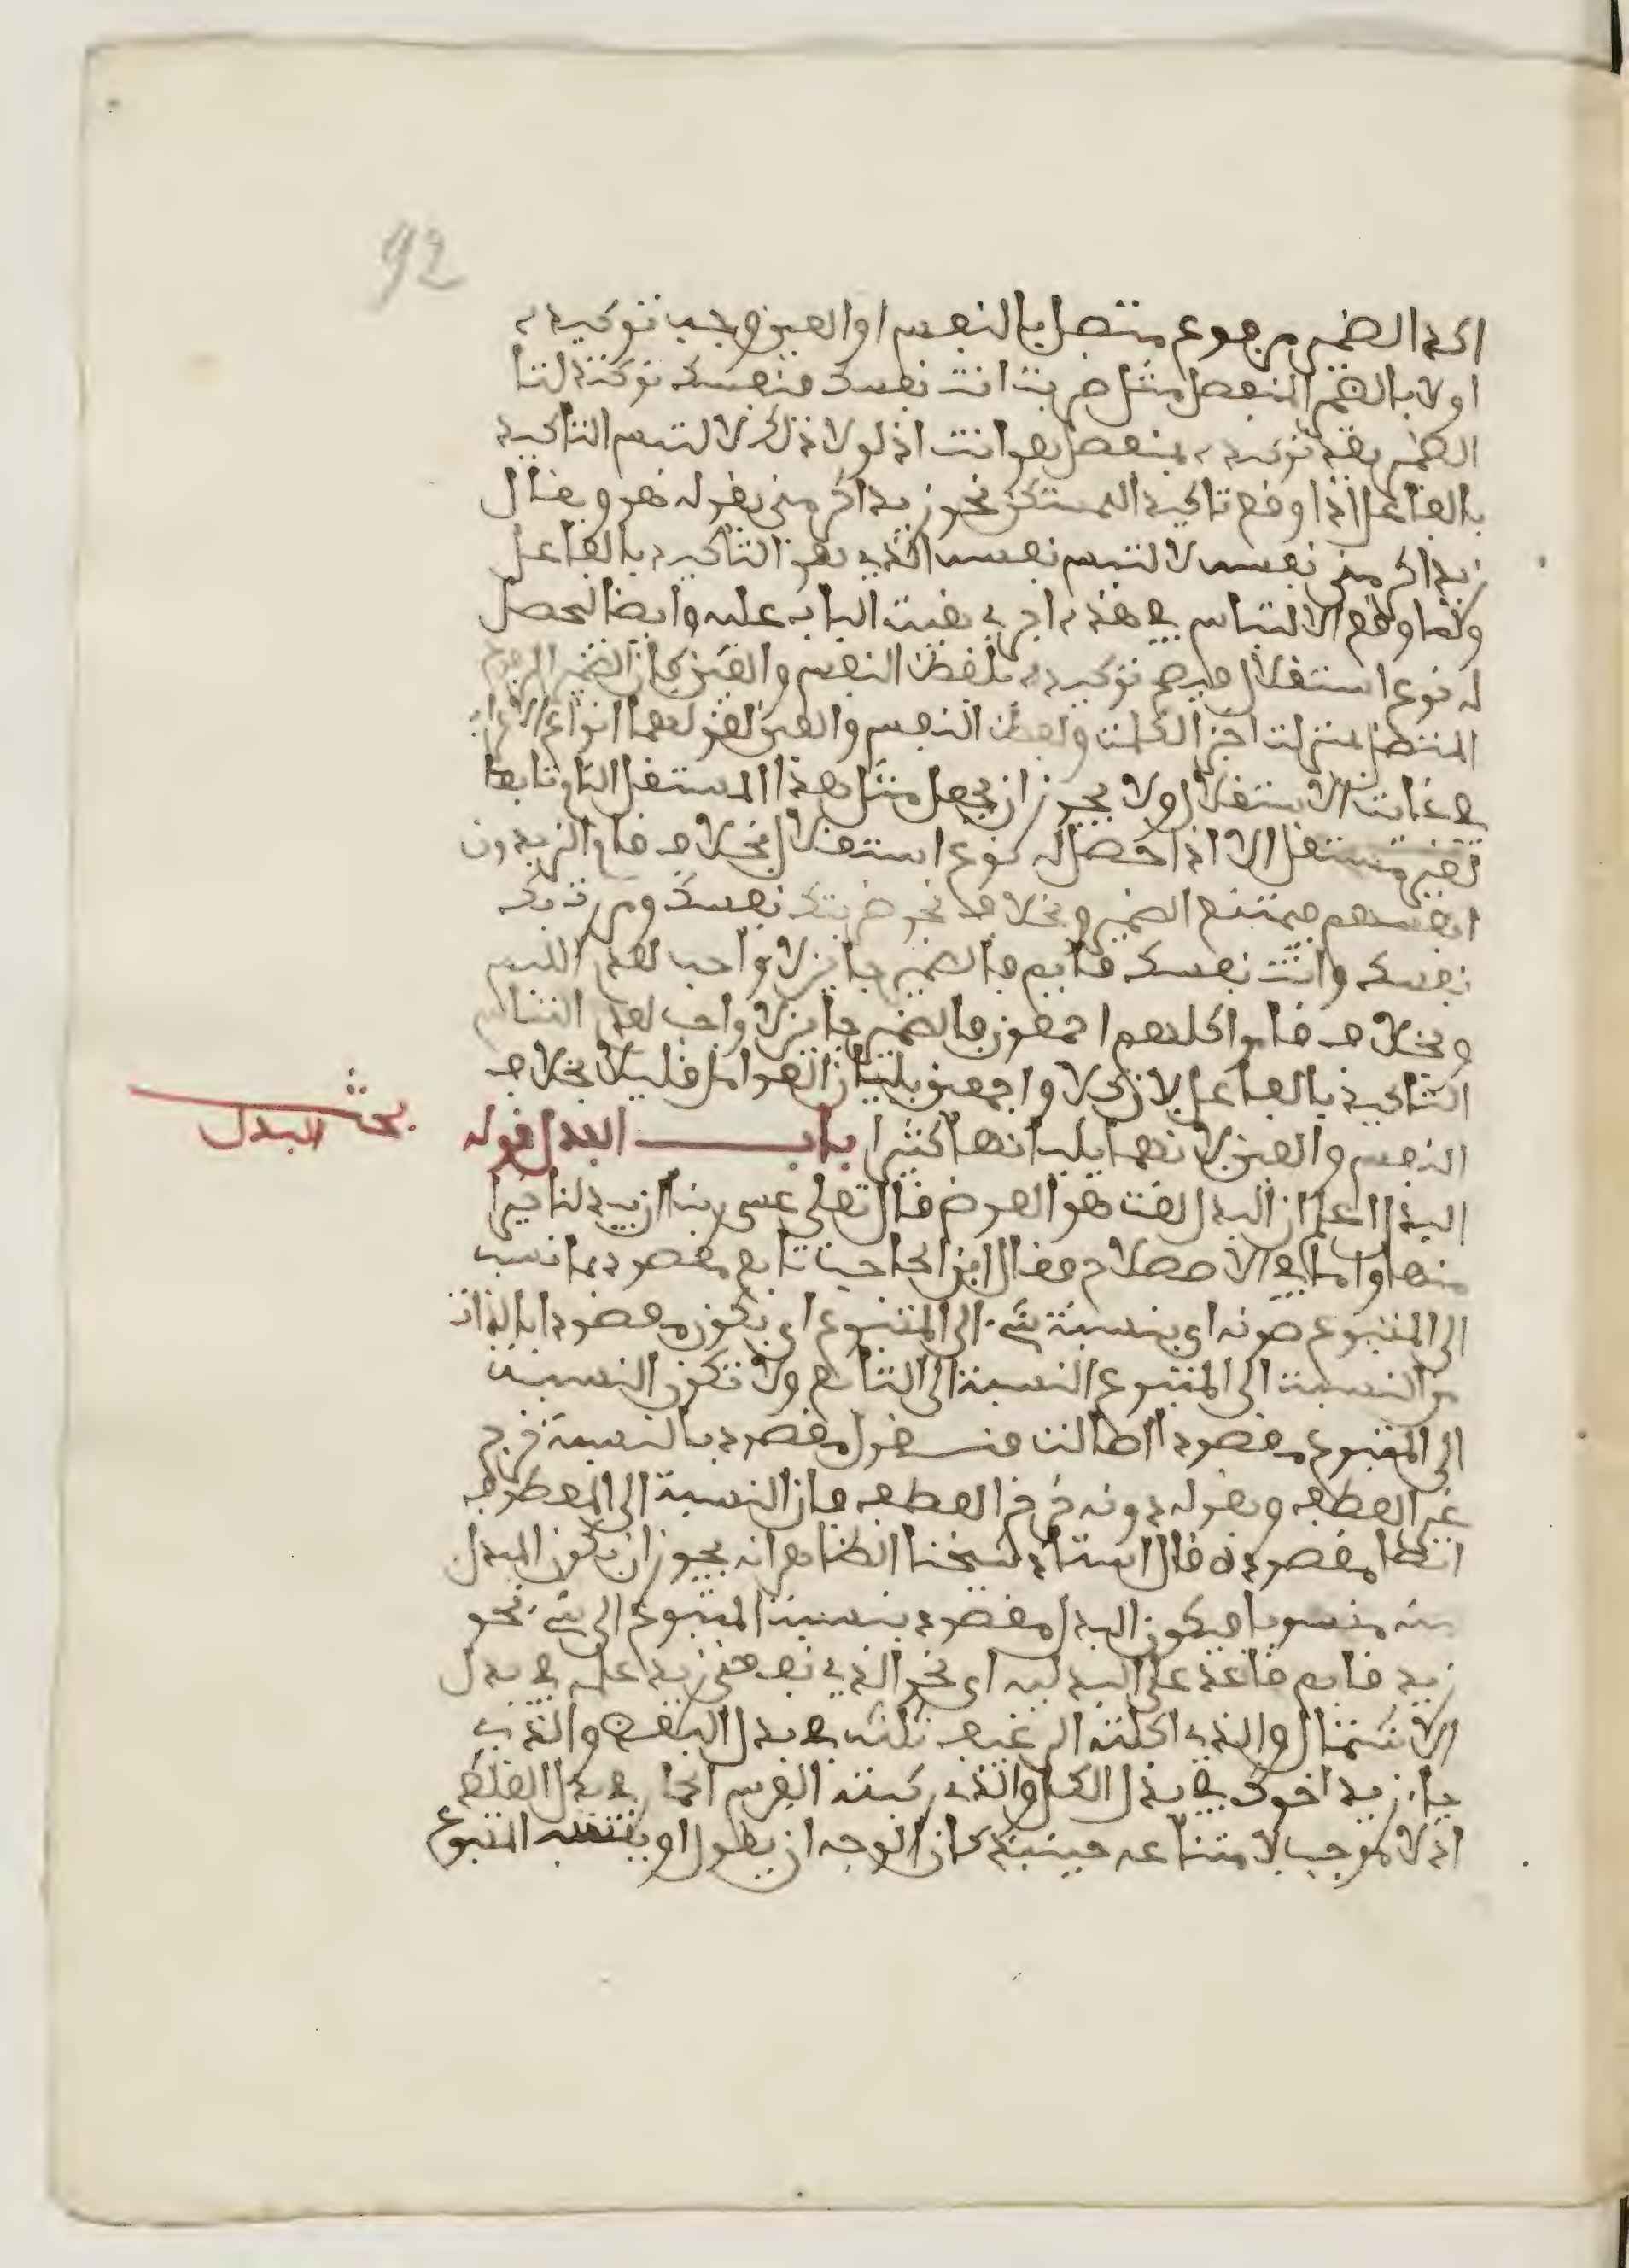 92
اكد الضمير مرفوع متصل بالنفس او العين وجب توكيده
اولا بالضمير المنفصل مثل ضربت انت نفسك فنفسك توكيد لتا
الضمير بعد توكيده بمنفصل هو انت اذ لولا ذلك لالتبس التاكيد
بالفاعل اذا وقع تاكيد المستكن نحو زيد اكرمنى بقوله هو ويقال
زيد اكرمنى نفسه لالتبس نفسه الذى هو التاكيد بالفاعل
ولما وقع الالتباس فى هذه اجرى بقيت الباب عليه وايضا لحصل
له نوع استقلال فيصح توكيده بلفظ النفس والعين كان الضمير المرفوع
المتصل بمنزلت اجز الكلمت ولفظ النفس والعين
فى غايت الاستقلال ولا يجوز ان يجعل مثل هذا المستقل التام تابعا
لغير مستقل الا اذا حصل له نوع استقلال بخلاف قاموا الزيدون
انفسهم فيمتنع الضمير وبخلاف نحو ضربتك نفسك ومررت بك
نفسك وانت نفسك قايم فالضمير جايز لا واجب لعدم اللبس
وبخلاف قاموا كلهم اجمعون فالضمير جايز لا واجب لعدم التباس
التاكيد بالفاعل لان كلا واجمعين يليان العوامل قليلا بخلاف
النفس والعين لانهما يليانها كثيرا باب البدل قوله
بحث البدل
البدل اعلم ان البدل لغت هو العوض قال تعلى عسى ربنا ان يبدلنا خيرا
منها واما فى الاصطلاح فقال ابن الحاجب تابع مقصود بما نسب
الى المتبوع دونه اى بنسبة شىء الى المتبوع اى يكون مقصودا بالذات
من النسبت الى المتبوع النسبة الى التابع ولا تكون النسبت
الى المتبوع مقصودا اطالت فبقول مقصود بالنسبة خرج
غير العطف وبقوله دونه خرج العطف فان النسبة الى المعطوف
انها مقصودة قال استاذ شيخنا الظاهر انه يجوز ان يكون المبدل
منه منسوبا فيكون البدل مقصود بنسبت المتبوع الى شىء نحو
زيد قايم قاعد على البدليه اى نحو الذى نفعنى زيد علمه فى بدل
الاشتمال والذى اكلته الرغيف ثلثه فى بدل البعض والذى
جا زيد اخوك فى بدل الكل والذى ركبته الفرس الحمار فى بدل الغلط
اذ لا موجب لامتناعه حينيذ كان الوجه ان يقول او ينسب المتبوع